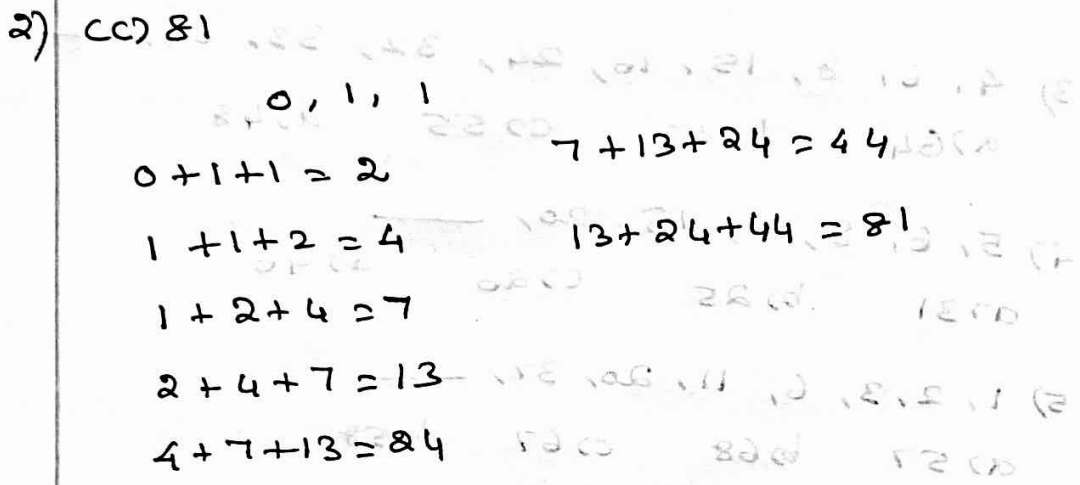 2) (C) 81
0, 1, 1
0 + 1 + 1 = 2
1 + 1 + 2 = 4
1 + 2 + 4 = 7
2 + 4 + 7 = 13
4 + 7 + 13 = 24
7 + 13 + 24 = 44
13 + 24 + 44 = 81